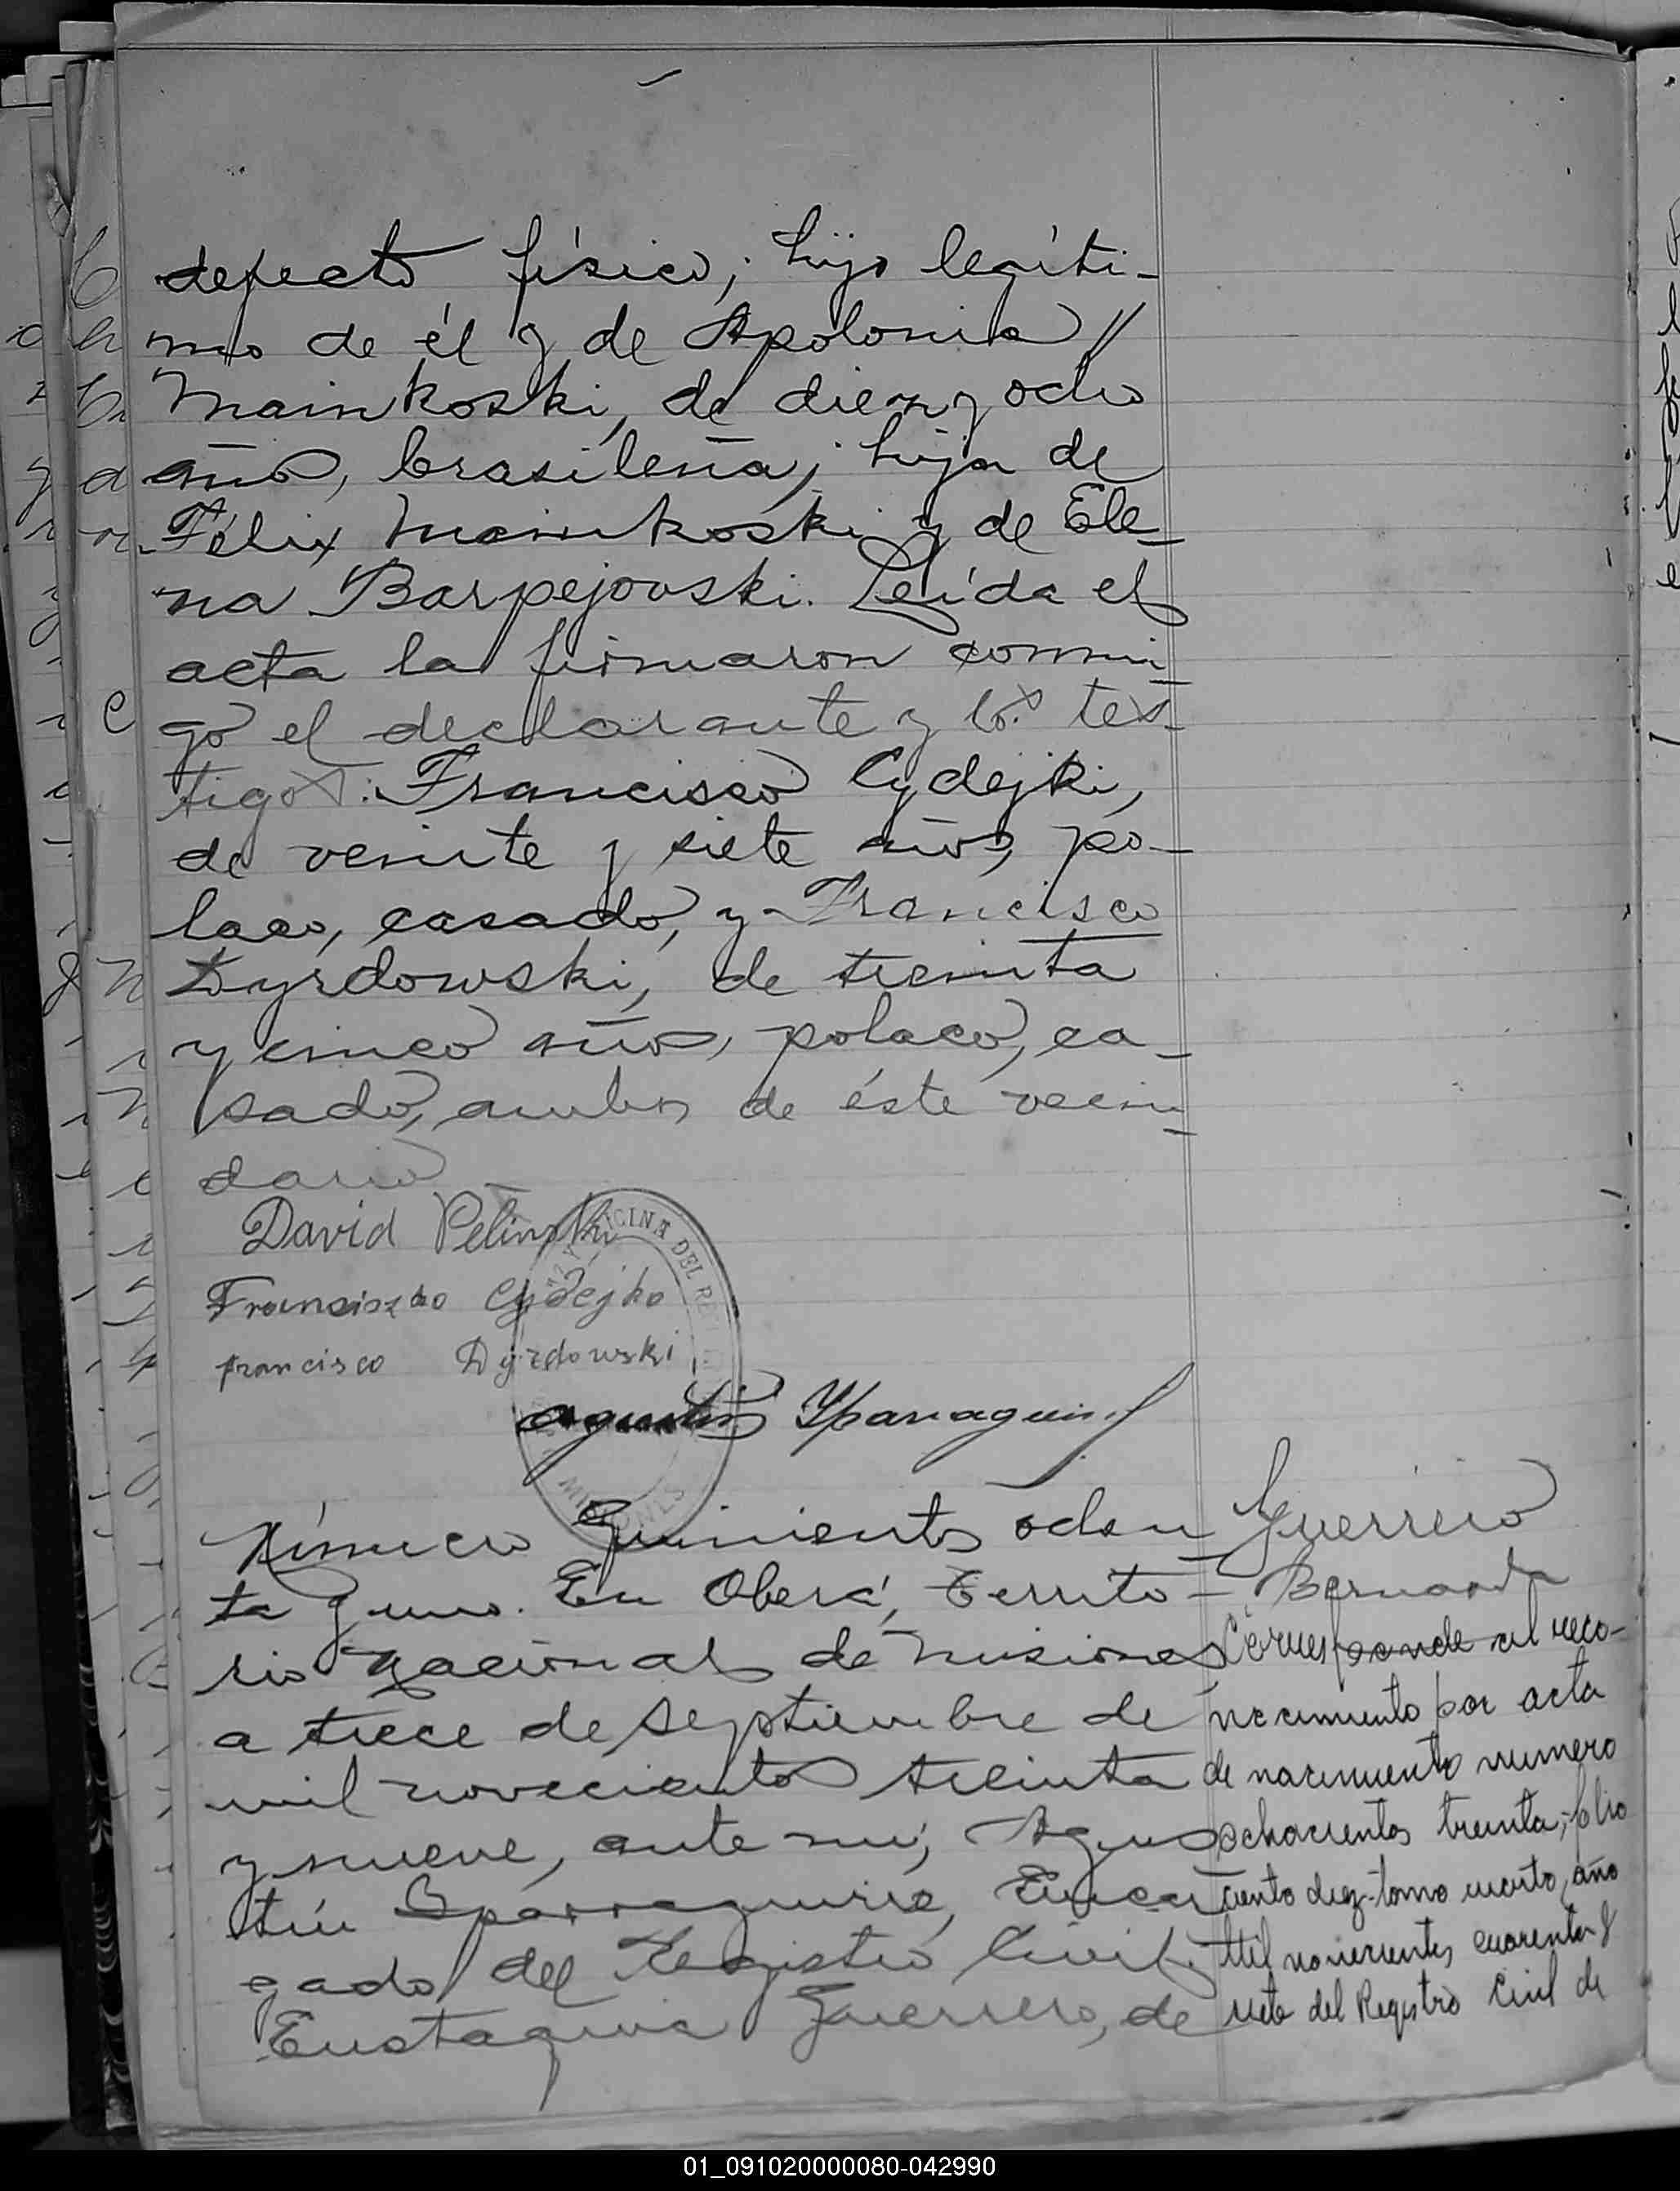 defecto físico; hijo legíti-
mo de él y de Apolonia //
Mainkoski, de diez y ocho
años, brasileña; hija de
Félix Mainkoski y de Ele-
na Barpejovski. Leída el
acta la firmaron conmi-
go el declarante y los tes-
tigos: Francisco Cydejki,
de veinte y siete años, po-
laco, casado, y Francisco
Dyrdowski, de treinta
y cinco años, polaco, ca-
sado, ambos de éste vecin-
dario
David Pelinski
Franciszko Cydejko
francisco Dyrdowski
Agustin Yparraguirre
OFICINA DEL
MISIONES
Número Quinientos ochen-
ta y uno. En Oberá, Territo-
rio Nacional de Misiones,
a trece de Septiembre de
mil novecientos treinta
y nueve, ante mí, Agus-
tín Yparraguirre, Encar-
gado del Registro Civil.
Eustaquia Guerrero, de
Guerrero
Bernarda
Corresponde al reco-
nocimiento por acta
de nacimiento numero
ochocientos treinta, folio
ciento diez-tomo cuarto, año
Mil novecientos cuarenta y
siete del Registro Civil de
01_091020000080-042990